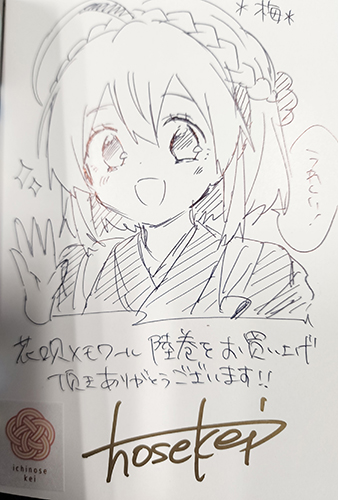 *梅*
うれしい!
花咲メモワール 陸巻をお買い上げ
頂きありがとうございます!!
ichinose
kei